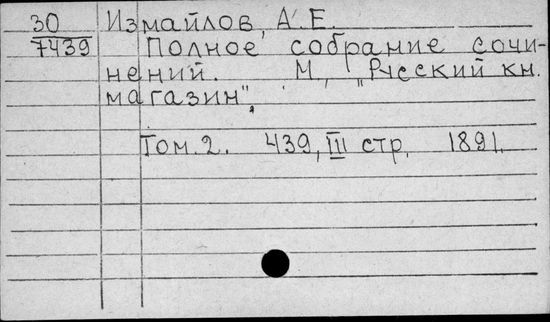 30 Измайлов, А.Е.
7439 Полное собрание сочи-
нений. М, „Русский кн.
магазин".
Том.2. 439, III стр. 1891.